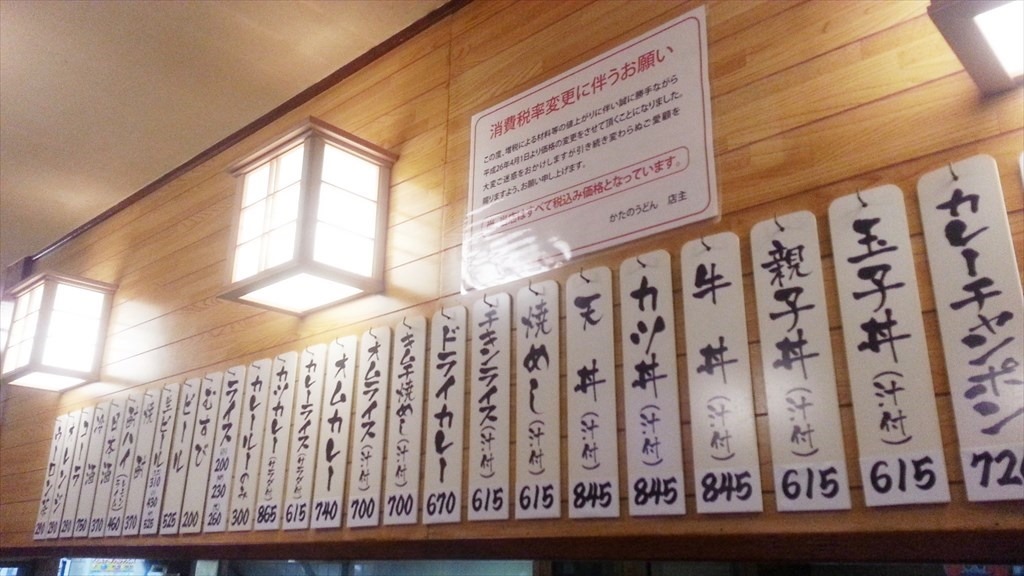 消費税率変更に伴うお願い
この度、増税による材料等の値上がりに伴い誠に勝手ながら
平成26年4月1日より価格の変更をさせて頂くことになりました。
大変ご迷惑をおかけしますが引き続き変わらぬご愛顧を
賜りますよう、お願い申し上げます。
当店はすべて税込み価格となっています。
かたのうどん 店主
カレーチャンポン
玉子丼(汁付)
615
親子丼(汁付)
615
牛丼(汁付)
845
カツ丼(汁付)
845
天丼(汁付)
845
焼めし(汁付)
615
チキンライス(汁付)
615
ドライカレー
670
キムチ焼めし(汁付)
700
オムライス(汁付)
700
オムカレー
740
カレーライス(サラダ付)
615
カツカレー(サラダ付)
865
カレールーのみ
300
ライス
200
230
260
むすび
200
ビール
525
生ビール